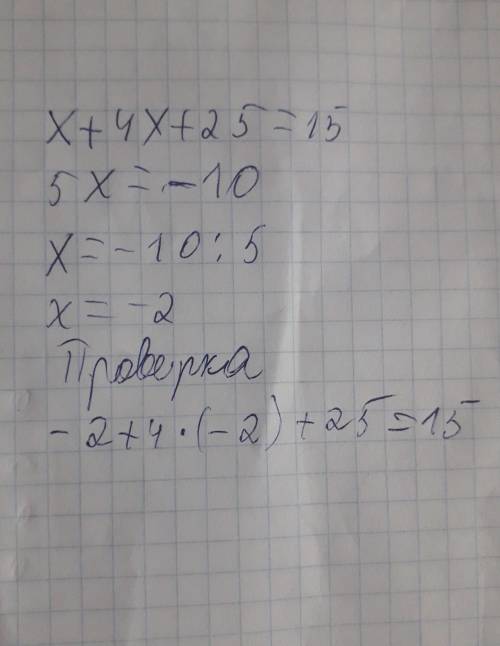 x+4x+25=15
5x=-10
x=-10:5
x=-2
Проверка
-2+4·(-2)+25=15